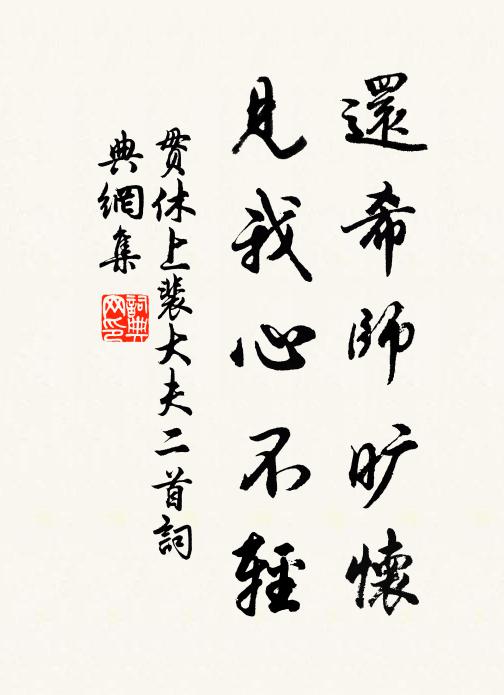 還希師曠懷
見我心不輕
貫休上裴大夫二首詞
典網集
詞典网印